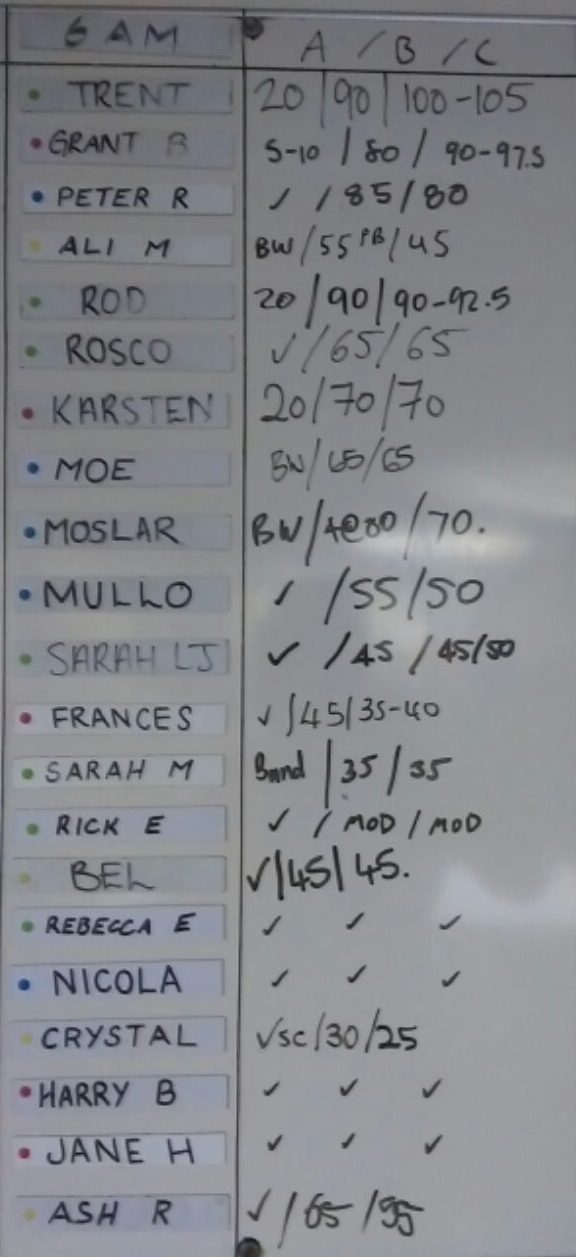 6 AM A / B / C
TRENT 20 / 90 / 100-105
GRANT B 5-10 / 80 / 90-97.5
PETER R ✓ / 85 / 80
ALI M BW / 55 PB / 45
ROD 20 / 90 / 90-92.5
ROSCO ✓ / 65 / 65
KARSTEN 20 / 70 / 70
MOE BW / 65 / 65
MOSLAR BW / 4@80 / 70.
MULLO ✓ / 55 / 50
SARAH LJ ✓ / 45 / 45/50
FRANCES ✓ / 45 / 35-40
SARAH M Band / 35 / 35
RICK E ✓ / MOD / MOD
BEL ✓ / 45 / 45.
REBECCA E ✓ ✓ ✓
NICOLA ✓ ✓ ✓
CRYSTAL ✓SC / 30 / 25
HARRY B ✓ ✓ ✓
JANE H ✓ ✓ ✓
ASH R ✓ / 65 /